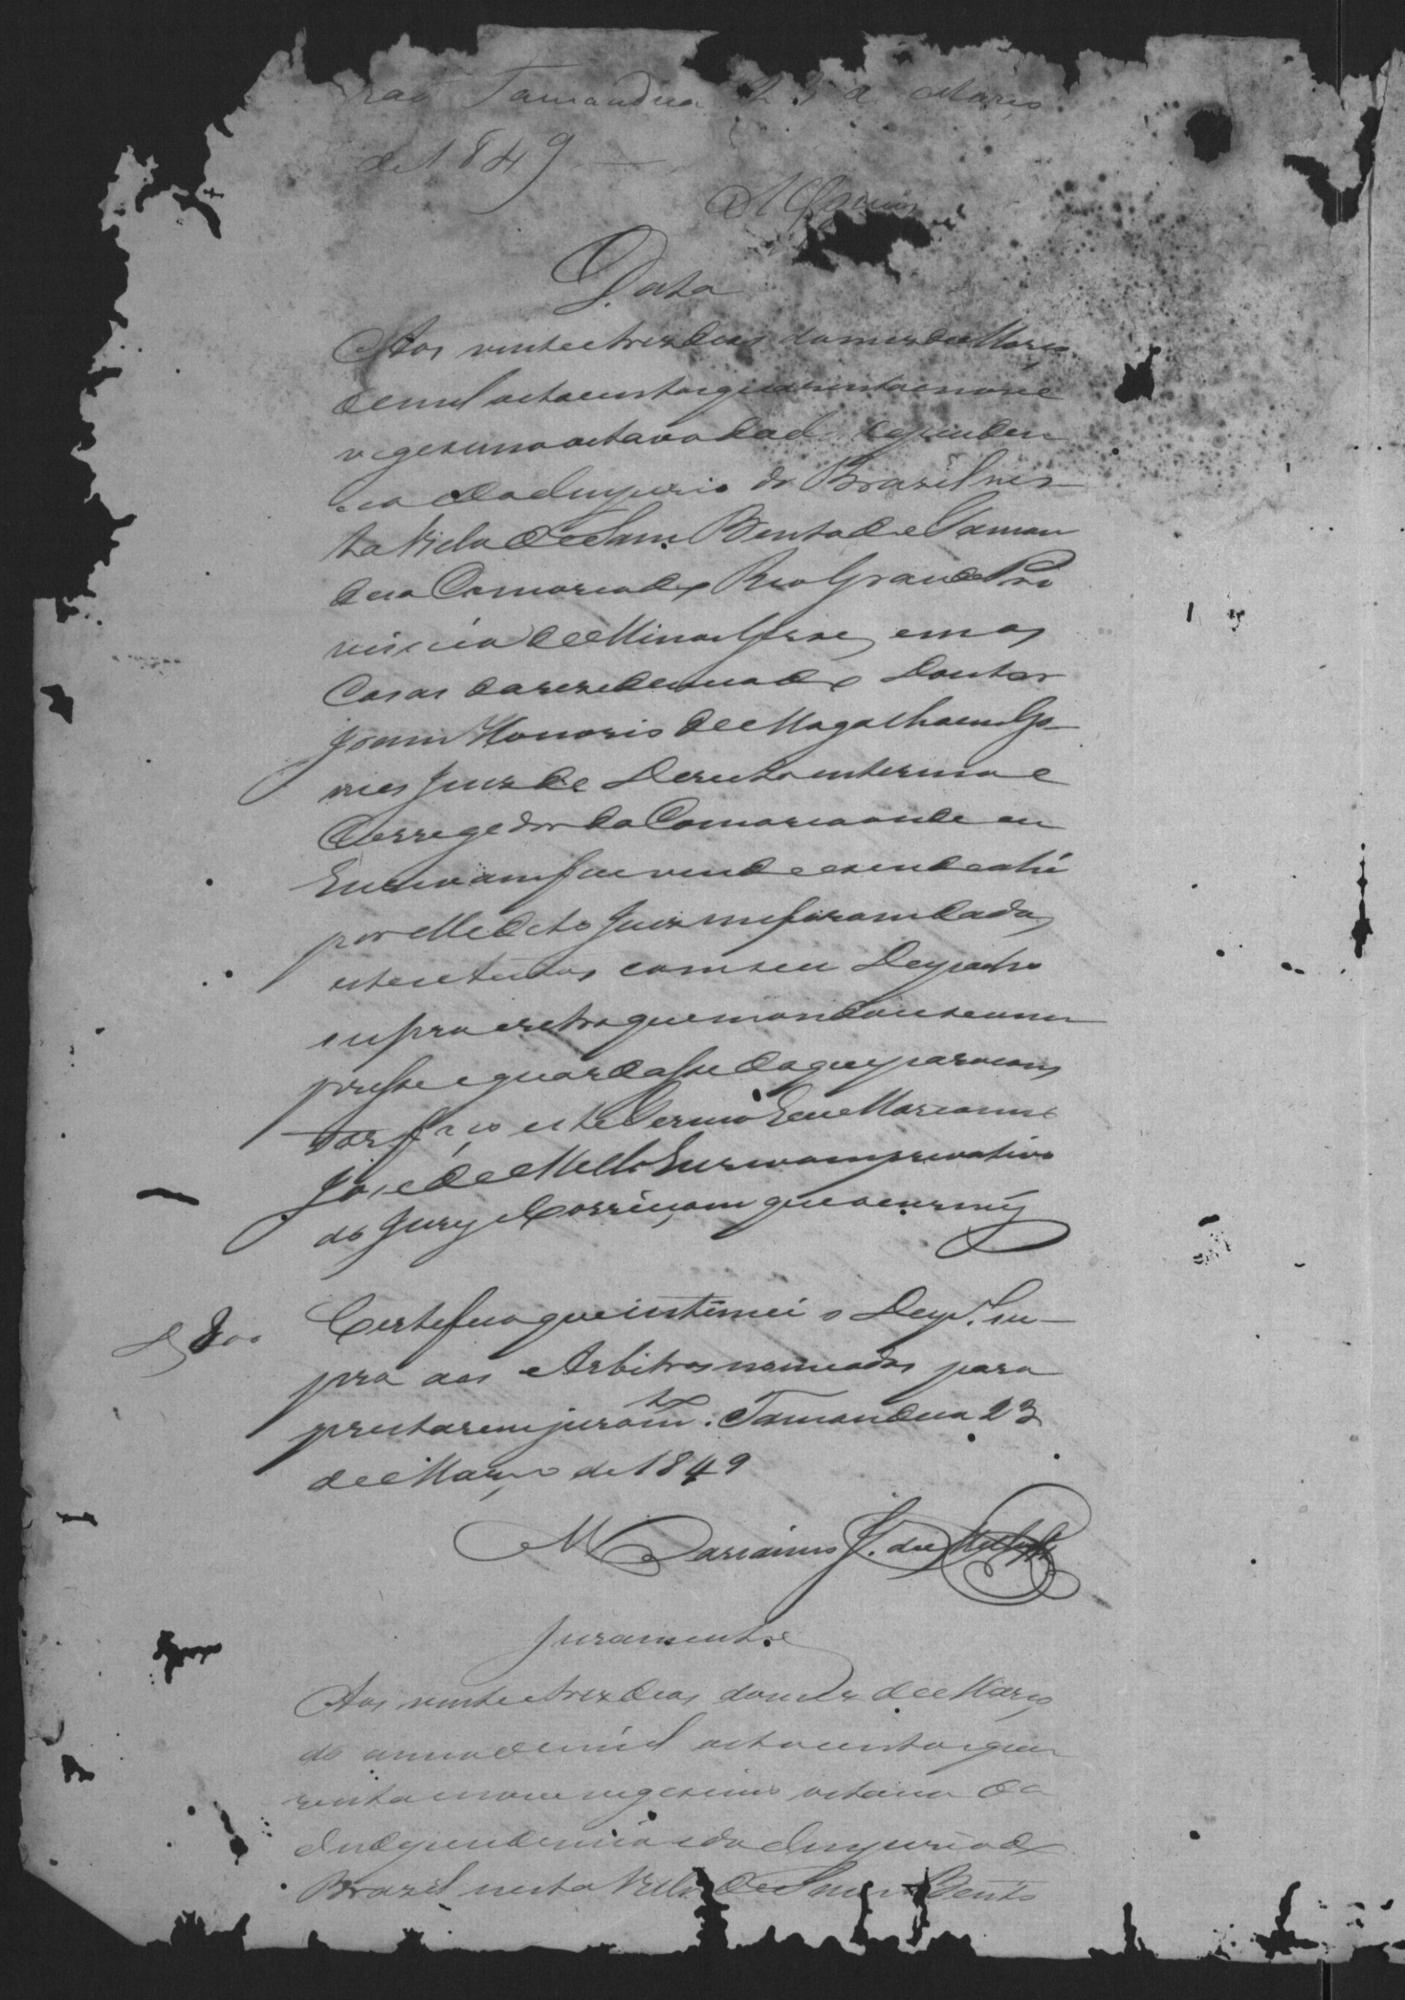 Tamandua 23 de Março
de 1849
Data
Aos vinte e trez dias do mez de Março
de mil oito centos e quarenta e nove
vigesimo oitavo da Independen
cia e do Imperio do Brazil nes
ta Villa de Sam Bento de Taman
dua Comarca do Rio Grande Pro
vincia de Minas Geraes em as
Casas da rezidencia do Doutor
Joam Honorio de Magalhaens Go
mes Juiz de Dereito interino e
Corregedor da Comarca onde eu
Escrivam fui vindo e sendo ahi
por elle dito Juiz me foram dados
estes autos com seu Despacho
supra e retro que mandou se cum
prisse e guardasse do que para cons
tar faço este Termo Eu Marianno
José de Mello Escrivam privativo
do Jury e Correiçam que o escrevy
Certefico que intimei o Desp. Su
pra aos Arbitros nomeados para
prestarem juramto. Tamandua 23
de Março de 1849
Marianno J. de Mello
Juramento
Aos vinte e trez dias do mez de Março
do anno de mil oito centos e qua
renta e nove vigesimo oitavo da
Independencia e do Imperio do
Brazil nesta Villa de Sam Bento